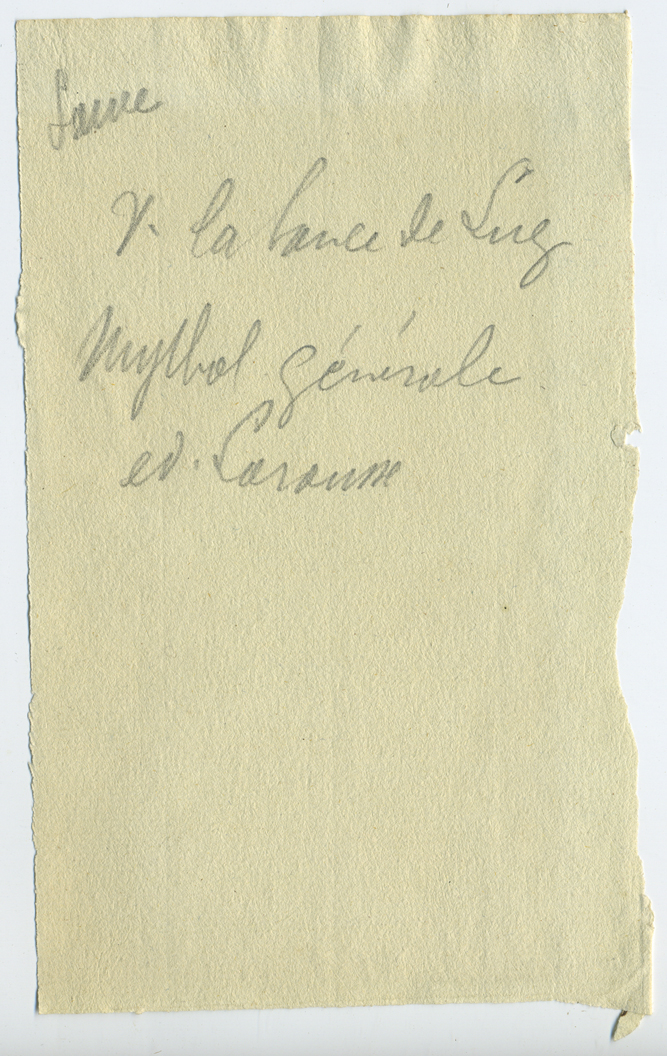 V. la lance de Lug
Mythol générale
ed. Larousse